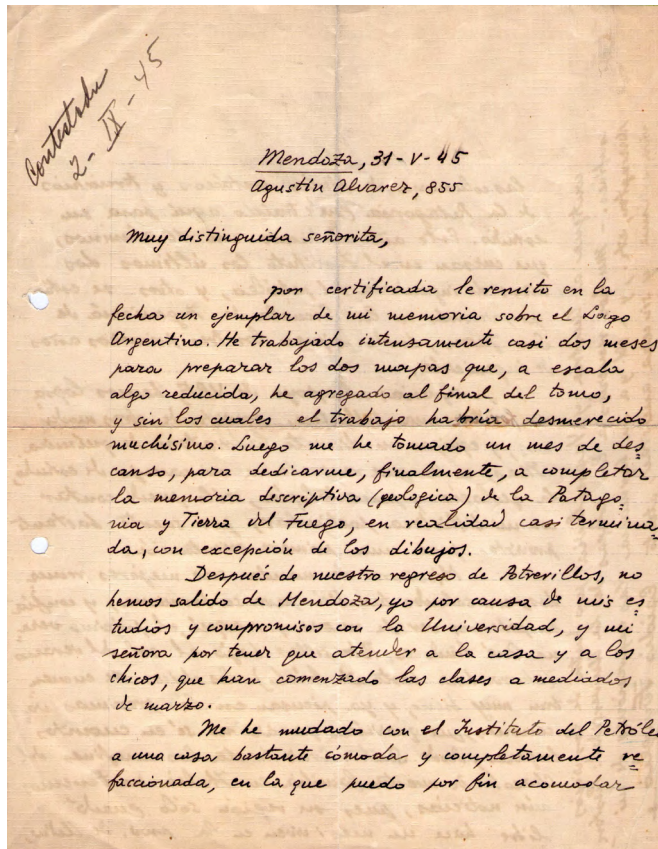 Contestada
2-IX-45
Mendoza, 31-V-45
Agustín Alvarez, 855
Muy distinguida señorita,
por certificada le remito en la
fecha un ejemplar de mi memoria sobre el Lago
Argentino. He trabajado intensamente casi dos meses
para preparar los dos mapas que, a escala
algo reducida, he agregado al final del tomo,
y sin los cuales el trabajo habría desmerecido
muchísimo. Luego me he tomado un mes de des=
canso, para dedicarme, finalmente, a completar
la memoria descriptiva (geologica) de la Patago=
nia y Tierra del Fuego, en realidad casi termina=
da, con excepción de los dibujos.
Después de nuestro regreso de Potrerillos, no
hemos salido de Mendoza, yo por causa de mis es=
tudios y compromisos con la Universidad, y mi
señora por tener que atender a la casa y a los
chicos, que han comenzado las clases a mediados
de marzo.
Me he mudado con el Instituto del Petróle
a una casa bastante cómoda y completamente re=
faccionada, en la que puedo por fin acomodar